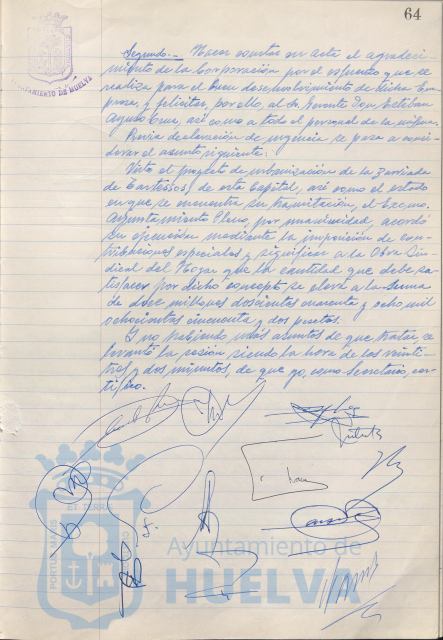 64
AYUNTAMIENTO DE HUELVA
Segundo.- Hacer constar en acta el agradeci-
miento de la Corporación por el esfuerzo que se
realiza para el buen desenvolvimiento de dicha Em-
presa, y felicitar, por ello, al Sr. Gerente Don Esteban
así como a todo el personal de la misma.
Previa declaración de urgencia se pasa a consi-
derar el asunto siguiente:
Visto el proyecto de urbanización de la Barriada
de Tartessos, de esta Capital, así como el estado
en que se encuentra su tramitación, el Excmo.
Ayuntamiento Pleno, por unanimidad, acordó
su ejecución mediante la imposición de con-
tribuciones especiales y significar a la Obra Sin-
dical del Hogar que la cantidad que debe sa-
tisfacer por dicho concepto se eleva a la suma
de doce millones doscientas cuarenta y ocho mil
ochocientas cincuenta y dos pesetas.
Y no habiendo más asuntos de que tratar, se
levantó la sesión siendo la hora de las veinti-
tres y dos minutos, de que yo, como Secretario, cer-
tifico.
PORTUS MARIS ET TERRÆ
Ayuntamiento de
HUELVA